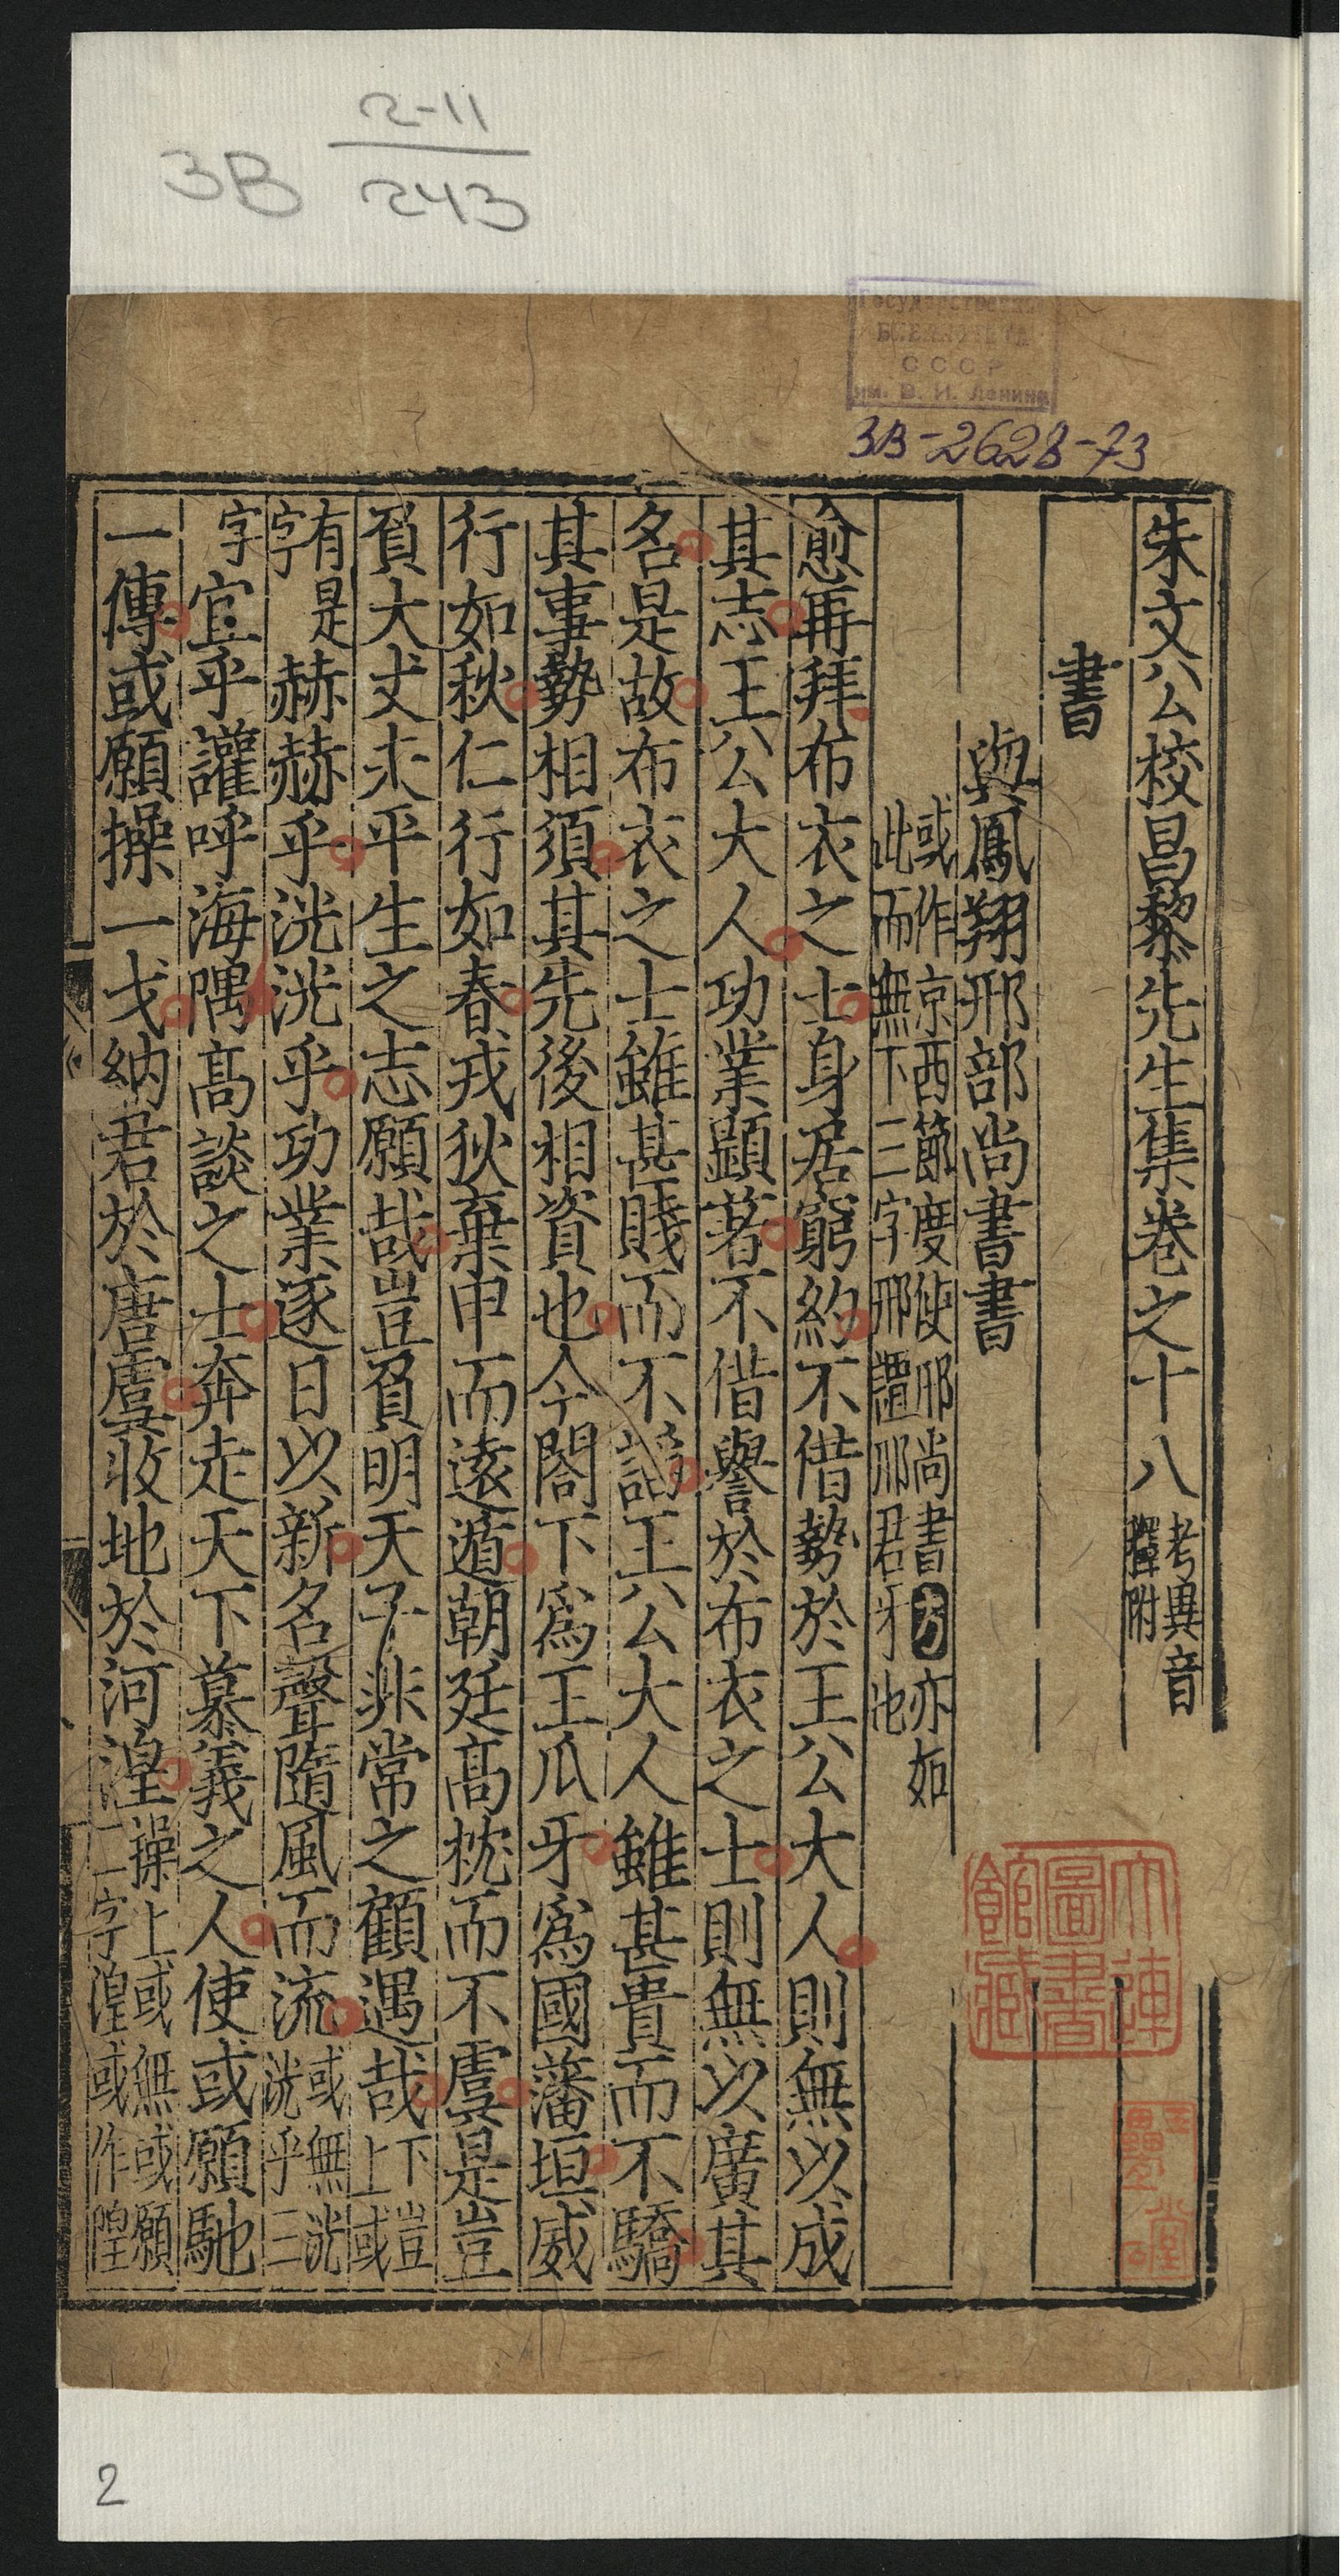 2-11
3B 243
Государственная
БИБЛИОТЕКА
СССР
им. В. И. Ленина
3B-2628-73
朱文公校昌黎先生集卷之十八 考異音釋附
書
與鳳翔邢部尚書書
或作京西節度使邢尚書方亦如
此而無下三字邢譿邢君牙也
愈再拜布衣之士身居窮約不借勢於王公大人則無以成
其志王公大人功業顯著不借譽於布衣之士則無以廣其
名是故布衣之士雖甚賤而不謟王公大人雖甚貴而不驕
其事勢相須其先後相資也今閤下爲王爪牙爲國藩垣威
行如秋仁行如春戎狄棄申而遠遁朝廷高枕而不虞是豈
負大丈夫平生之志願哉豈負明天子非常之顧遇哉 下豈上或
有是字 赫赫乎洸洸乎功業逐日以新名聲隨風而流 或無洸洸乎三
字 宜乎讙呼海隅高談之士奔走天下慕義之人使或願馳
一傳或願操一戈納君於唐虞收地於河湟 操上或無或願二字湟或作隍
大連圖書館藏
2